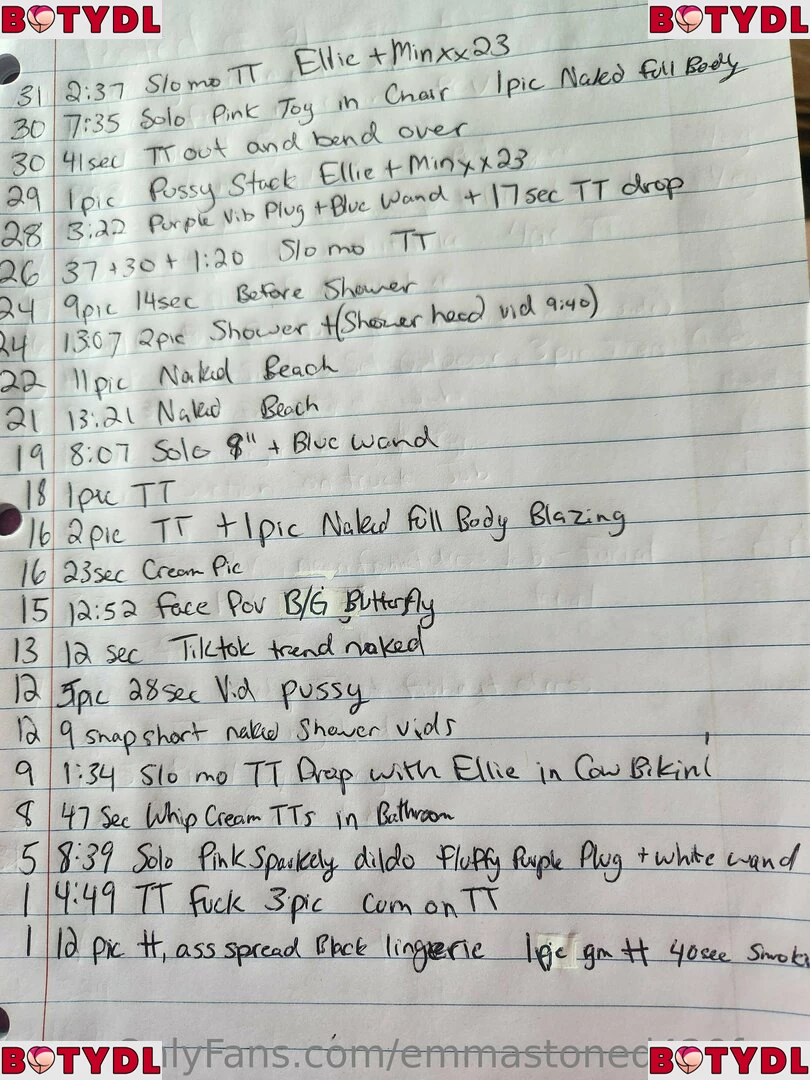 BOTYDL BOTYDL
31 2:37 Slo mo TT Ellie + Minxx23
30 7:35 Solo Pink Toy in Chair 1pic Naked Full Body
30 41sec TT out and bend over
29 1pic Pussy Stack Ellie + Minxx23
28 3:22 Purple Vib Plug + Blue Wand + 17sec TT drop
26 37+30+1:20 Slo mo TT
24 9pic 14sec Before Shower
24 13:07 2pic Shower +(Shower head vid 9:40)
22 11pic Naked Beach
21 13:21 Naked Beach
19 8:07 Solo 8" + Blue wand
18 1pic TT
16 2pic TT +1pic Naked Full Body Blazing
16 23sec Cream Pic
15 12:52 Face Pov B/G Butterfly
13 12 sec Tiktok trend naked
12 5pic 28sec Vid pussy
12 9 snap short naked Shower vids
9 1:34 Slo mo TT Drop with Ellie in Cow Bikini
8 47 Sec Whip Cream TTs in Bathroom
5 8:39 Solo Pink Sparkely dildo Fluffy Purple Plug + white wand
1 4:49 TT Fuck 3pic cum on TT
1 12 pic tt, ass spread Black lingerie 1pic gm tt 40sec
OnlyFans.com/emmastoned
BOTYDL BOTYDL